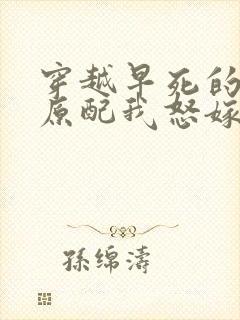 穿越早死的
原配我怒嫁
孫绵濤